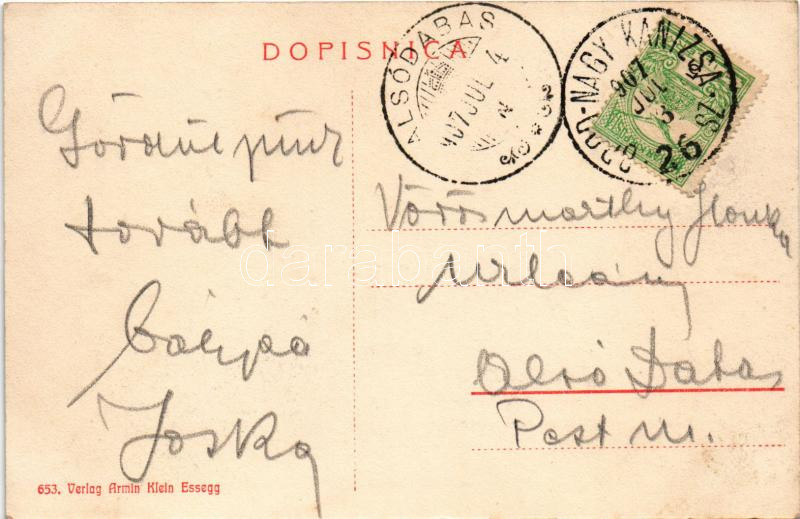 DOPISNICA
ALSÓDABAS
907 JUL 4
NAGY KANIZSA
907 JUL 3
26
tovább
Joska
Vörösmarthy Ilonka
Urleány
Alsó Dabas
Pest m.
653. Verlag Armin Klein Essegg
darabanth